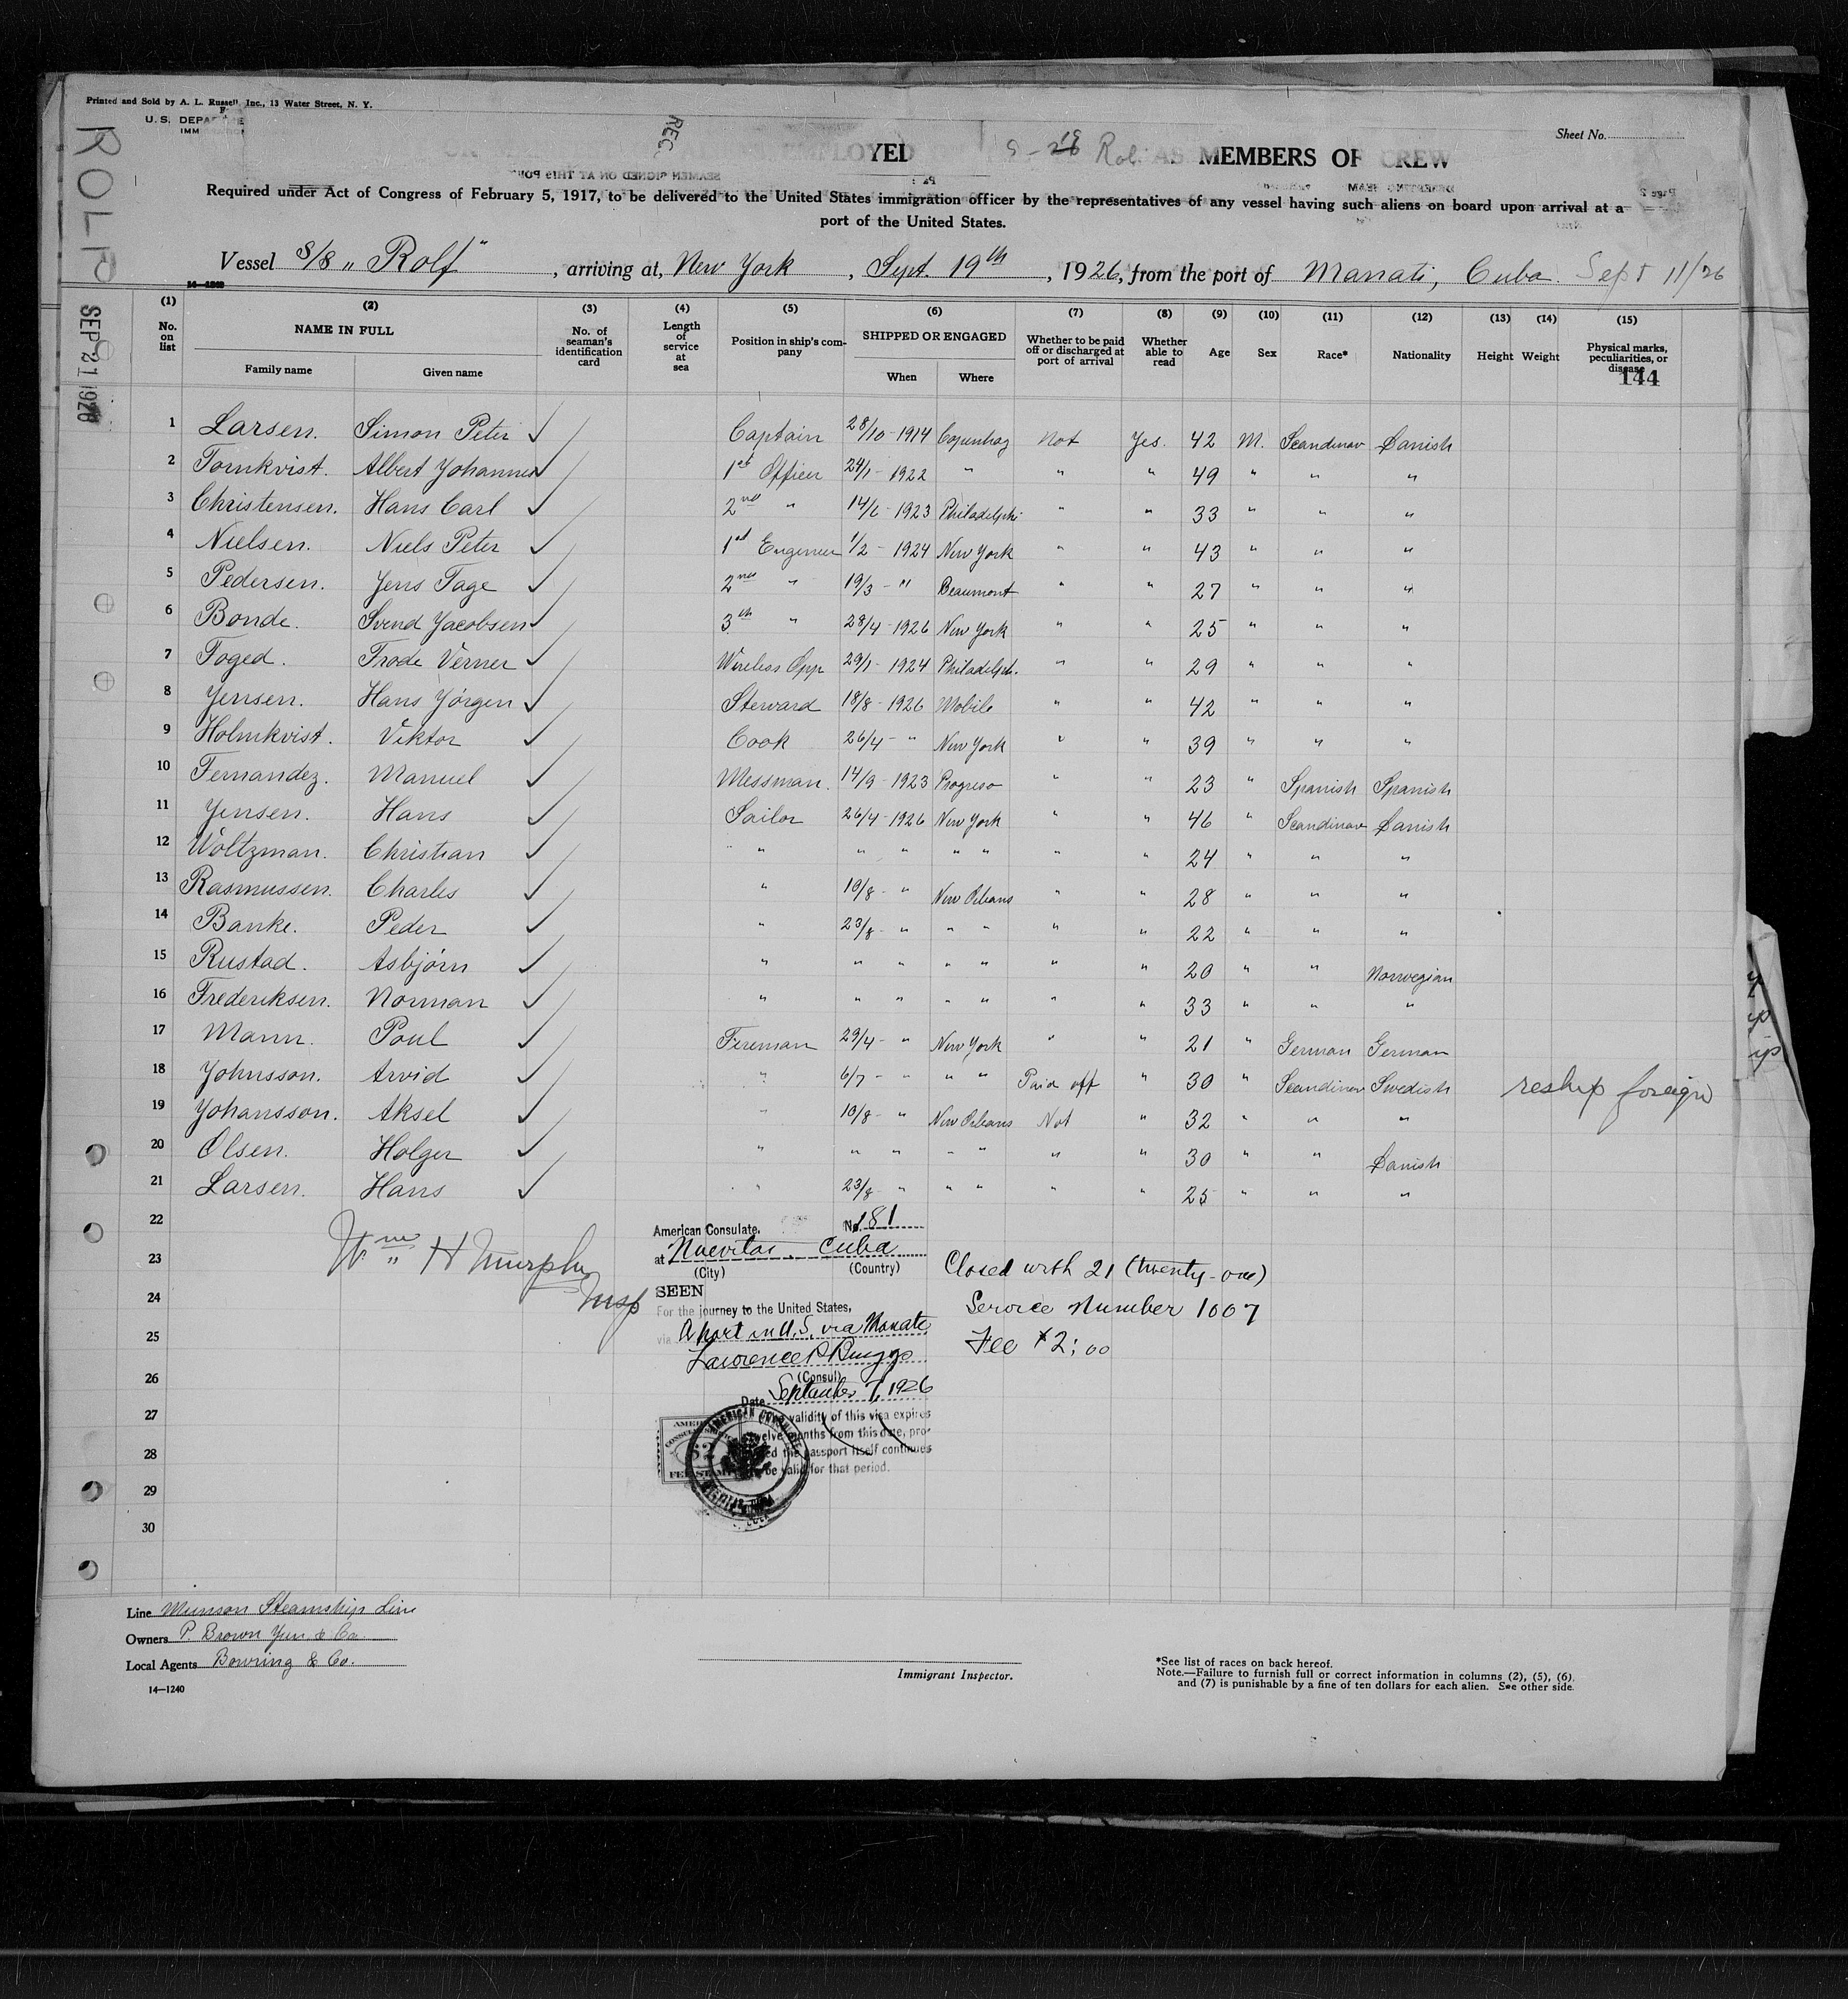 Printed and Sold by A. L. Russell, Inc., 13 Water Street, N. Y.
U. S. DEPA
IMM
Sheet No.
YED AS MEMBERS OF CREW
Required under Act of Congress of February 5, 1917, to be delivered to the United States immigration officer by the representatives of any vessel having such aliens on board upon arrival at a
port of the United States.
Vessel S/S "Rolf", arriving at, New York, Sept. 19th, 1926, from the port of Manati, Cuba. Sept 11/26
ROLF
SEP 21 1926
(1) No. on list
(2) NAME IN FULL Family name Given name
(3) No. of seaman's identification card
(4) Length of service at sea
(5) Position in ship's company
(6) SHIPPED OR ENGAGED When Where
(7) Whether to be paid off or discharged at port of arrival
(8) Whether able to read
(9) Age
(10) Sex
(11) Race*
(12) Nationality
(13) Height
(14) Weight
(15) Physical marks, peculiarities, or disease
144
1 Larsen. Simon Peter ✓ Captain 28/10-1914 Copenhag Not Yes. 42 M. Scandinav Danish
2 Tornkvist. Albert Johannes ✓ 1st Officer 24/1-1922 " " " 49 " " "
3 Christensen. Hans Carl ✓ 2nd " 14/6-1923 Philadelphi " " 33 " " "
4 Nielsen. Niels Peter ✓ 1st Engineer 1/2-1924 New York " " 43 " " "
5 Pedersen. Jens Tage ✓ 2nd " 19/3-" Beaumont " " 27 " " "
6 Bonde. Svend Jacobsen ✓ 3th " 28/4-1926 New York " " 25 " " "
7 Foged. Frode Verner ✓ Wireless Opp 29/1-1924 Philadelph. " " 29 " " "
8 Jensen. Hans Jörgen ✓ Steward 18/8-1926 Mobile " " 42 " " "
9 Holmkvist. Viktor ✓ Cook 26/4-" New York " " 39 " " "
10 Fernandez. Manuel ✓ Messman. 14/9-1923 Progreso " " 23 " Spanish Spanish
11 Jensen. Hans ✓ Sailor 26/4-1926 New York " " 46 " Scandinav Danish
12 Wöltzman. Christian ✓ " " " " " " " 24 " " "
13 Rasmussen. Charles ✓ " 10/8-" New Orleans " " 28 " " "
14 Banke. Peder ✓ " 23/8-" " " " " 22 " " "
15 Rustad. Asbjörn ✓ " " " " " " " 20 " " Norwegian
16 Frederiksen. Norman ✓ " " " " " " " 33 " " "
17 Mann. Poul ✓ Fireman 29/4-" New York " " 21 " German German
18 Johnsson. Arvid ✓ " 6/7-" " " Paid off " 30 " Scandinav Swedish reship foreign
19 Johansson. Aksel ✓ " 10/8-" New Orleans Not " 32 " " "
20 Olsen. Holger ✓ " " " " " " " 30 " " Danish
21 Larsen. Hans ✓ " 23/8-" " " " " 25 " " "
22
23
24
25
26
27
28
29
30
Wm H Murphy
Insp
American Consulate, No. 181
at Nuevitas, Cuba
(City) (Country)
SEEN
For the journey to the United States,
via A port in U.S. via Manati
(Consul)
Date September 7, 1926
validity of this visa expires
twelve months from this date, pro-
ed the passport itself continues
be valid for that period.
Closed with 21 (twenty-one)
Service Number 1007
Fee $2.00
Line Munson Steamship Line
Owners P. Brown Jun. & Co.
Local Agents Bowring & Co.
14—1240
Immigrant Inspector.
*See list of races on back hereof.
Note.—Failure to furnish full or correct information in columns (2), (5), (6),
and (7) is punishable by a fine of ten dollars for each alien. See other side.